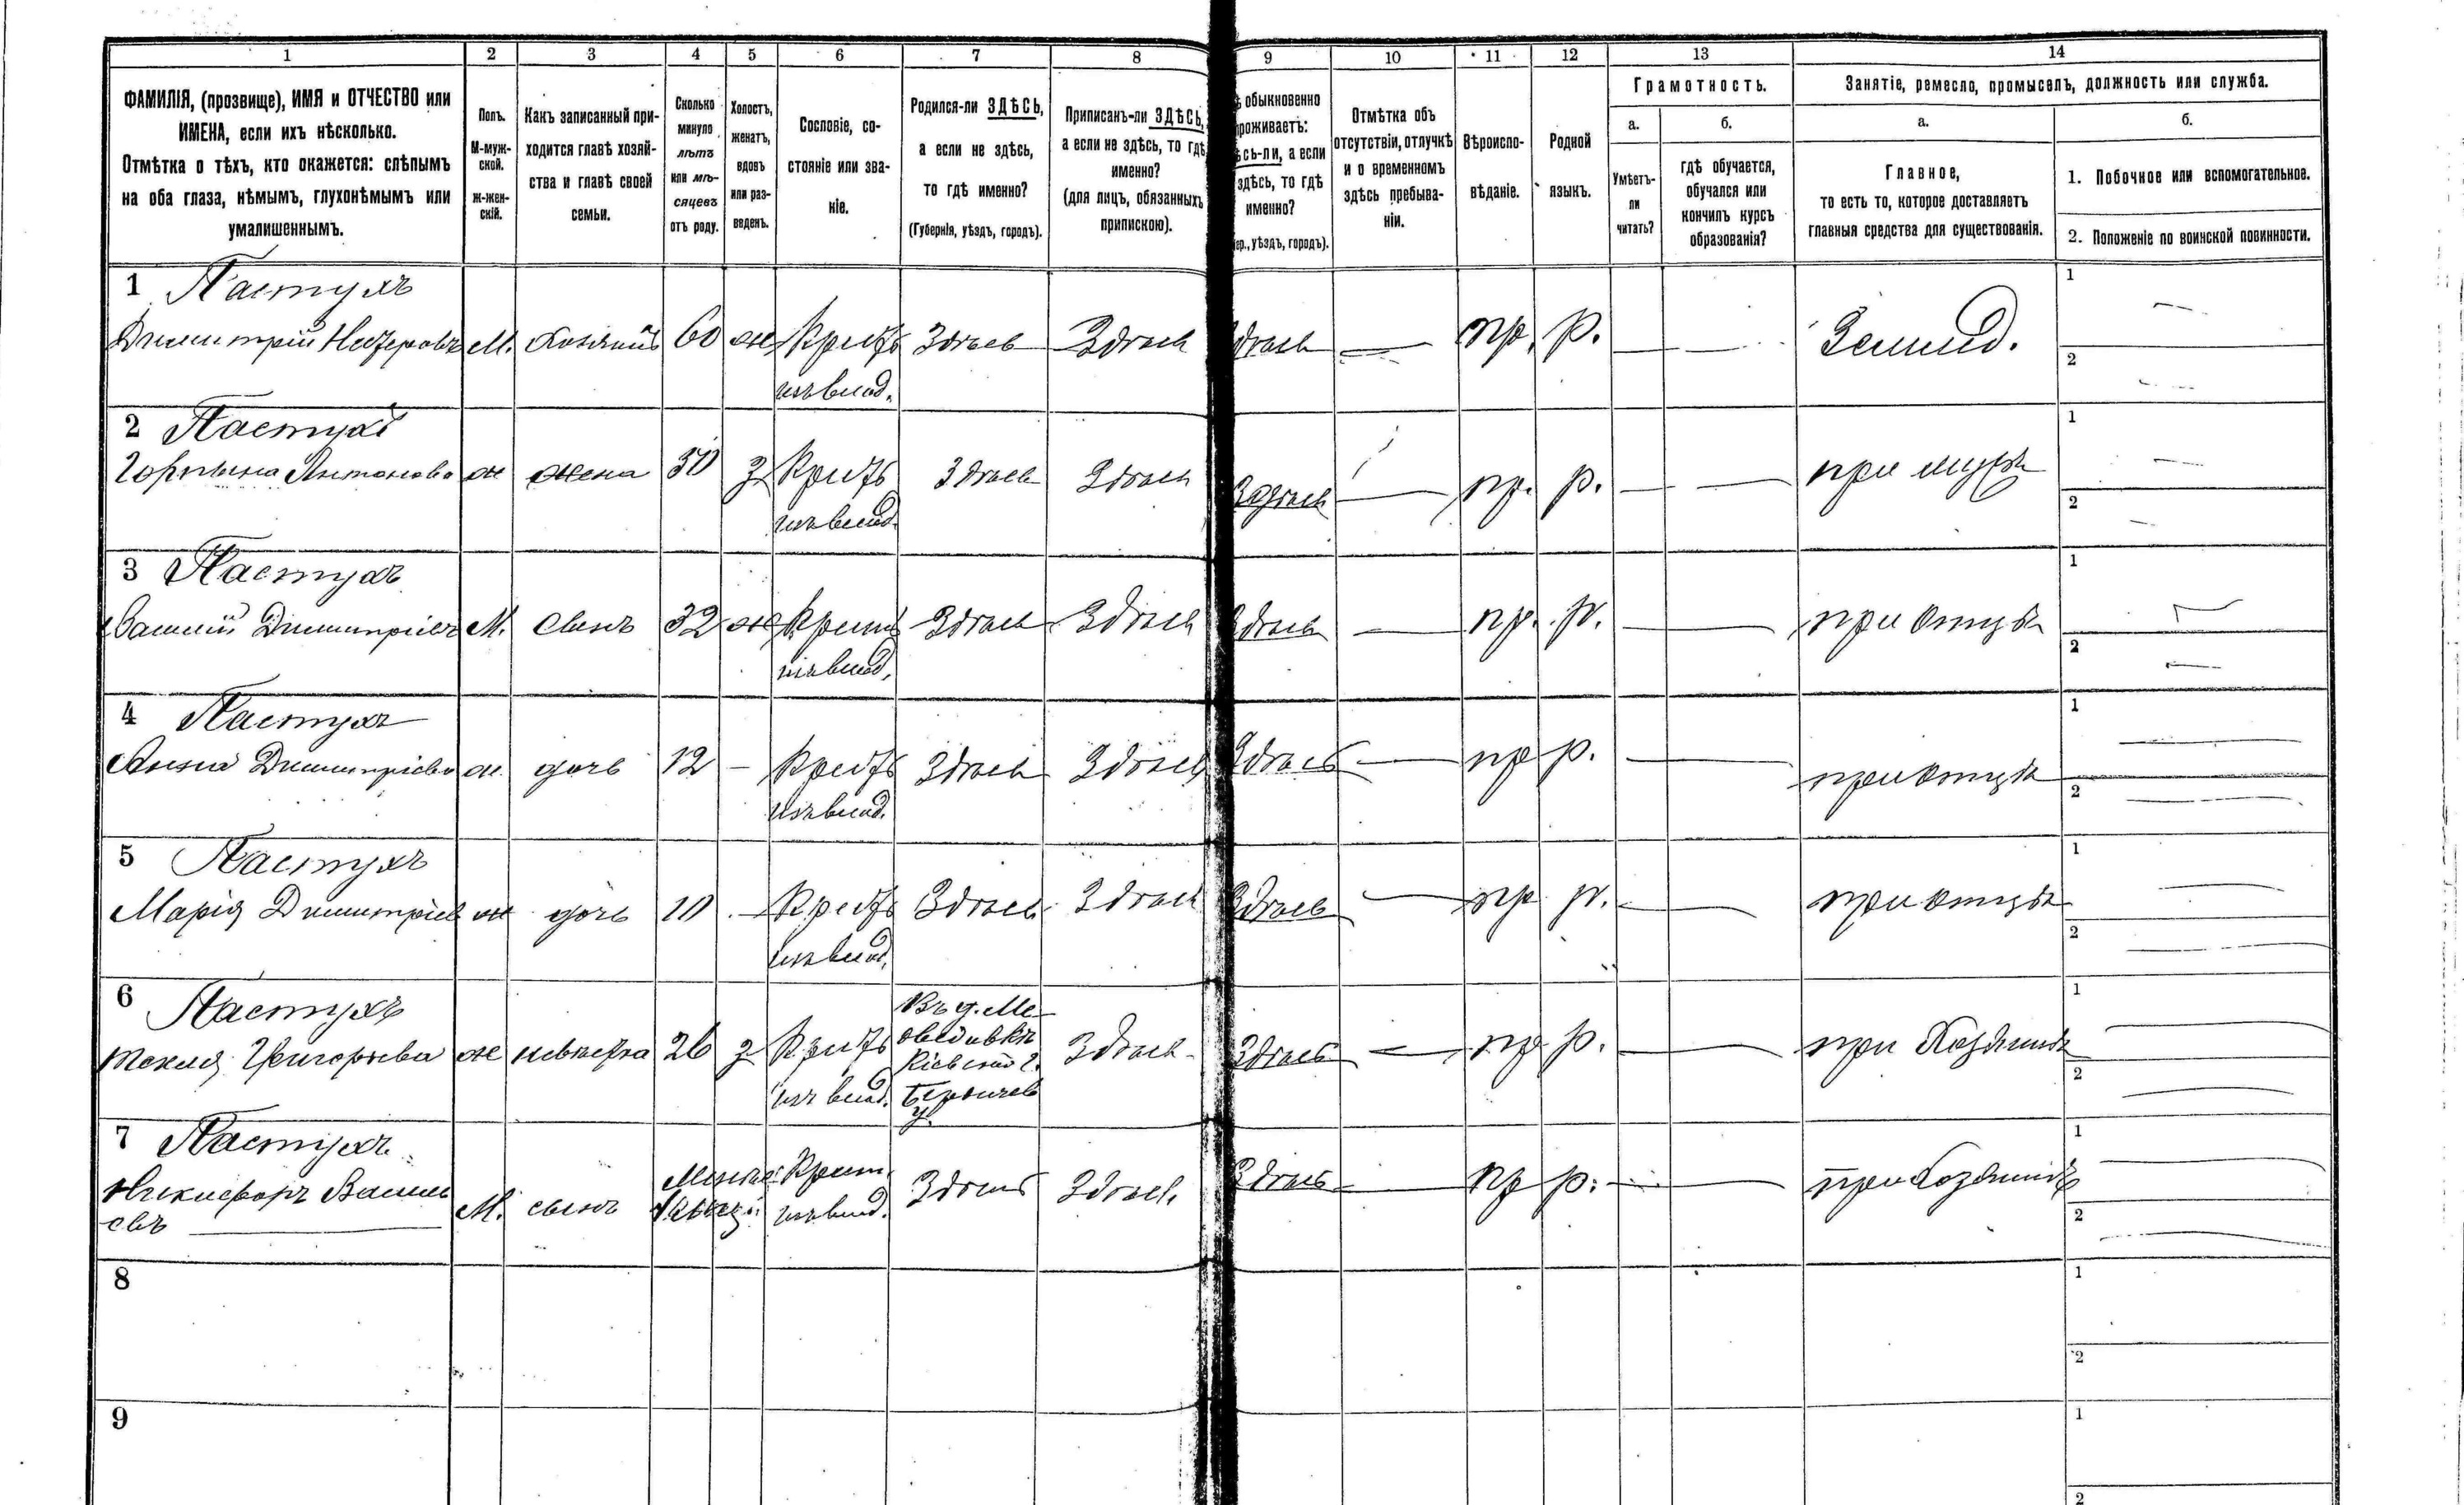 1 2 3 4 5 6 7 8 9 10 11 12 13 14
ФАМИЛІЯ, (прозвище), ИМЯ и ОТЧЕСТВО или
ИМЕНА, если ихъ нѣсколько.
Отмѣтка о тѣхъ, кто окажется: слѣпымъ
на оба глаза, нѣмымъ, глухонѣмымъ или
умалишеннымъ.
Полъ.
М-муж-
ской.
ж-жен-
скій.
Какъ записанный при-
ходится главѣ хозяй-
ства и главѣ своей
семьи.
Сколько
минуло
лѣтъ
или мѣ-
сяцевъ
отъ роду.
Холостъ,
женатъ,
вдовъ
или раз-
веденъ.
Сословіе, со-
стояніе или зва-
ніе.
Родился-ли ЗДѢСЬ,
а если не здѣсь,
то гдѣ именно?
(Губернія, уѣздъ, городъ).
Приписанъ-ли ЗДѢСЬ,
а если не здѣсь, то гдѣ
именно?
(для лицъ, обязанныхъ
припискою).
ѣ обыкновенно
проживаетъ:
ѣсь-ли, а если
здѣсь, то гдѣ
именно?
ер., уѣздъ, городъ).
Отмѣтка объ
отсутствіи, отлучкѣ
и о временномъ
здѣсь пребыва-
ніи.
Вѣроиспо-
вѣданіе.
Родной
языкъ.
Грамотность.
а.
Умѣетъ-
ли
читать?
б.
гдѣ обучается,
обучался или
кончилъ курсъ
образованія?
Занятіе, ремесло, промыселъ, должность или служба.
а.
Главное,
то есть то, которое доставляетъ
главныя средства для существованія.
б.
1. Побочное или вспомогательное.
2. Положеніе по воинской повинности.
1 Пастухъ
Димитрій Назеровъ М. хозяинъ 60 ж Крест Здѣсь Здѣсь Здѣсь — пр. р. — — Землед. 1 —
изъ влад. 2 —
2 Пастухъ
Горпина Антонова ж жена 50 з Крест Здѣсь Здѣсь Здѣсь — пр. р. — — при мужѣ 1 —
изъ влад. 2 —
3 Пастухъ
Василій Димитріевъ М. сынъ 32 ж Крест Здѣсь Здѣсь Здѣсь — пр. р. — при отцѣ 1 —
изъ влад. 2 —
4 Пастухъ
Анна Димитріева ж. дочь 12 — Крест Здѣсь Здѣсь Здѣсь — пр р. — при отцѣ 1 —
изъ влад. 2 —
5 Пастухъ
Марія Димитріев ж дочь 10 — Крест Здѣсь Здѣсь Здѣсь — пр р. — — при отцѣ 1 —
изъ влад. 2 —
6 Пастухъ
Текля Григорьева ж невѣстка 26 з Крест Здѣсь Здѣсь — пр р. — при Хозяинѣ 1 —
изъ влад. 2 —
Кіевской г.
Бердичев
у.
7 Пастухъ
Никифоръ Василь М. сынъ Крест. Здѣсь Здѣсь Здѣсь — пр р. — при Хозяинѣ 1 —
евъ изъ влад. 2 —
8 1
2
9 1
2